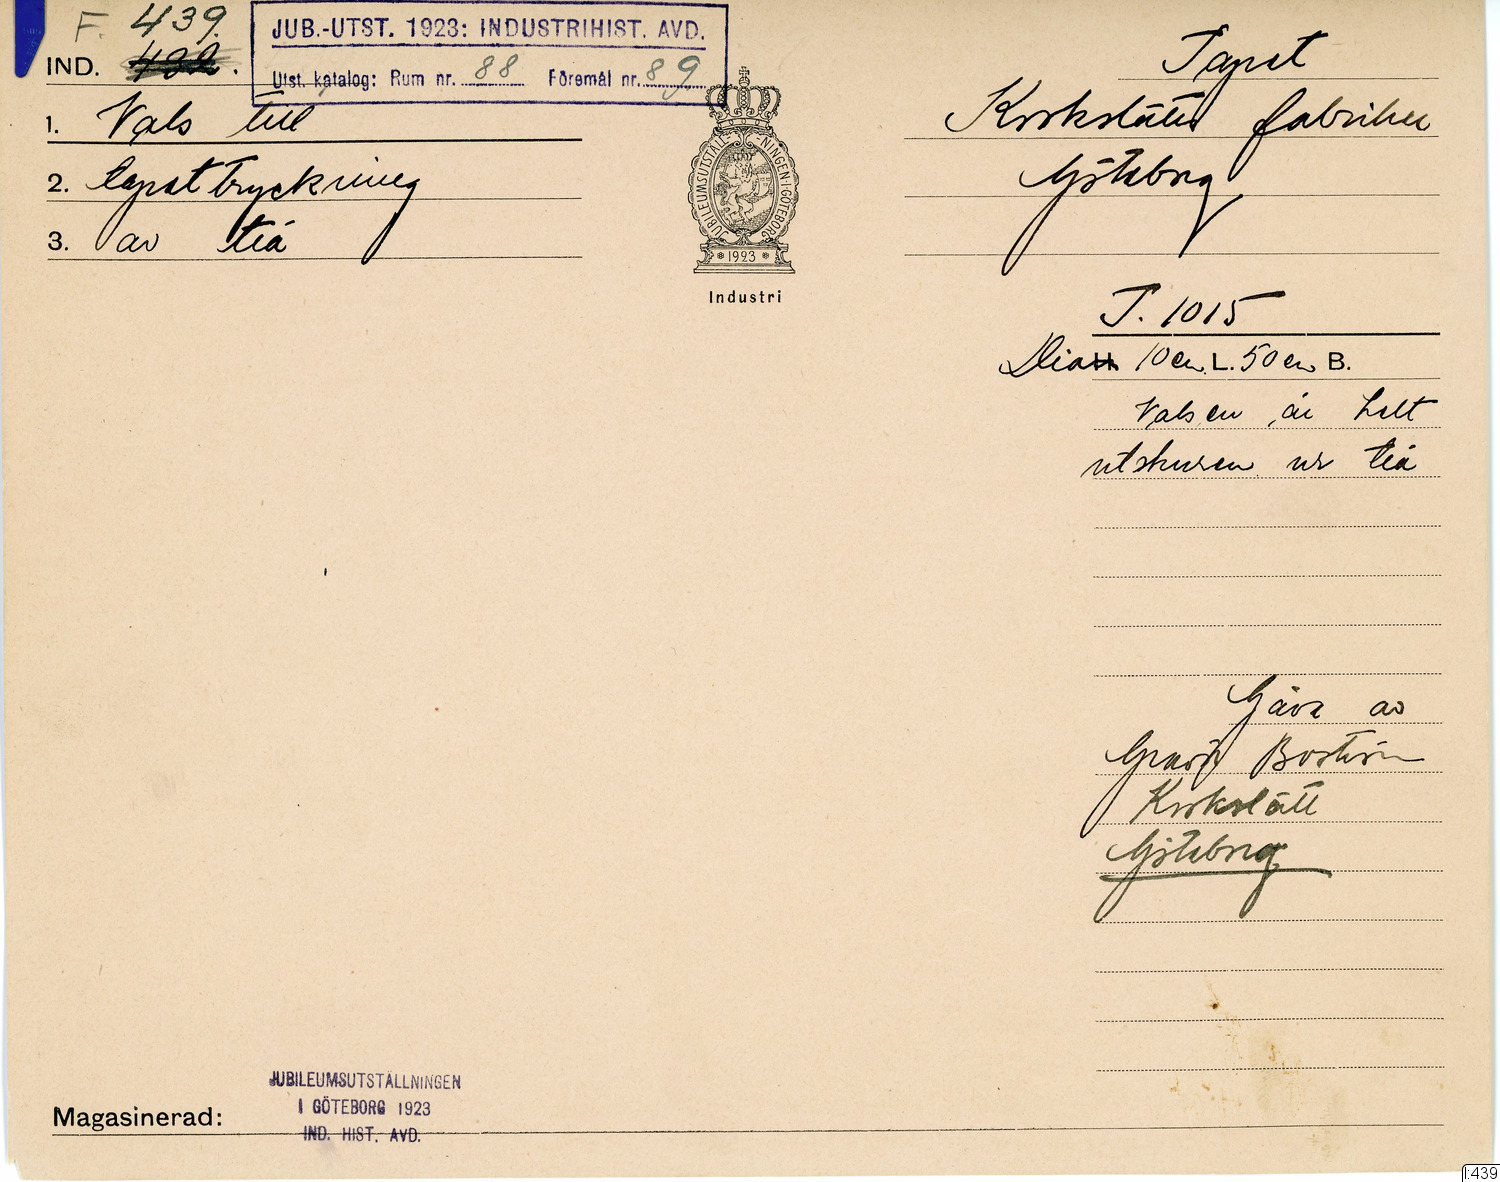 F. 439.
IND. 432.
JUB.-UTST. 1923: INDUSTRIHIST. AVD.
Utst. katalog: Rum nr. 88 Föremål nr. 89
1. Vals till
2. tapettryckning
3. av trä
JUBILEUMSUTSTÄLLNINGEN·I·GÖTEBORG
1923
Industri
Tapet
Krokslätts fabriker
Göteborg
T. 1015
Dia H. 10 cm L. 50 cm B.
Valsen är helt
utskuren ur trä
Gåva av
Boström
Krokslätt
Göteborg
JUBILEUMSUTSTÄLLNINGEN
I GÖTEBORG 1923
IND. HIST. AVD.
Magasinerad:
I:439